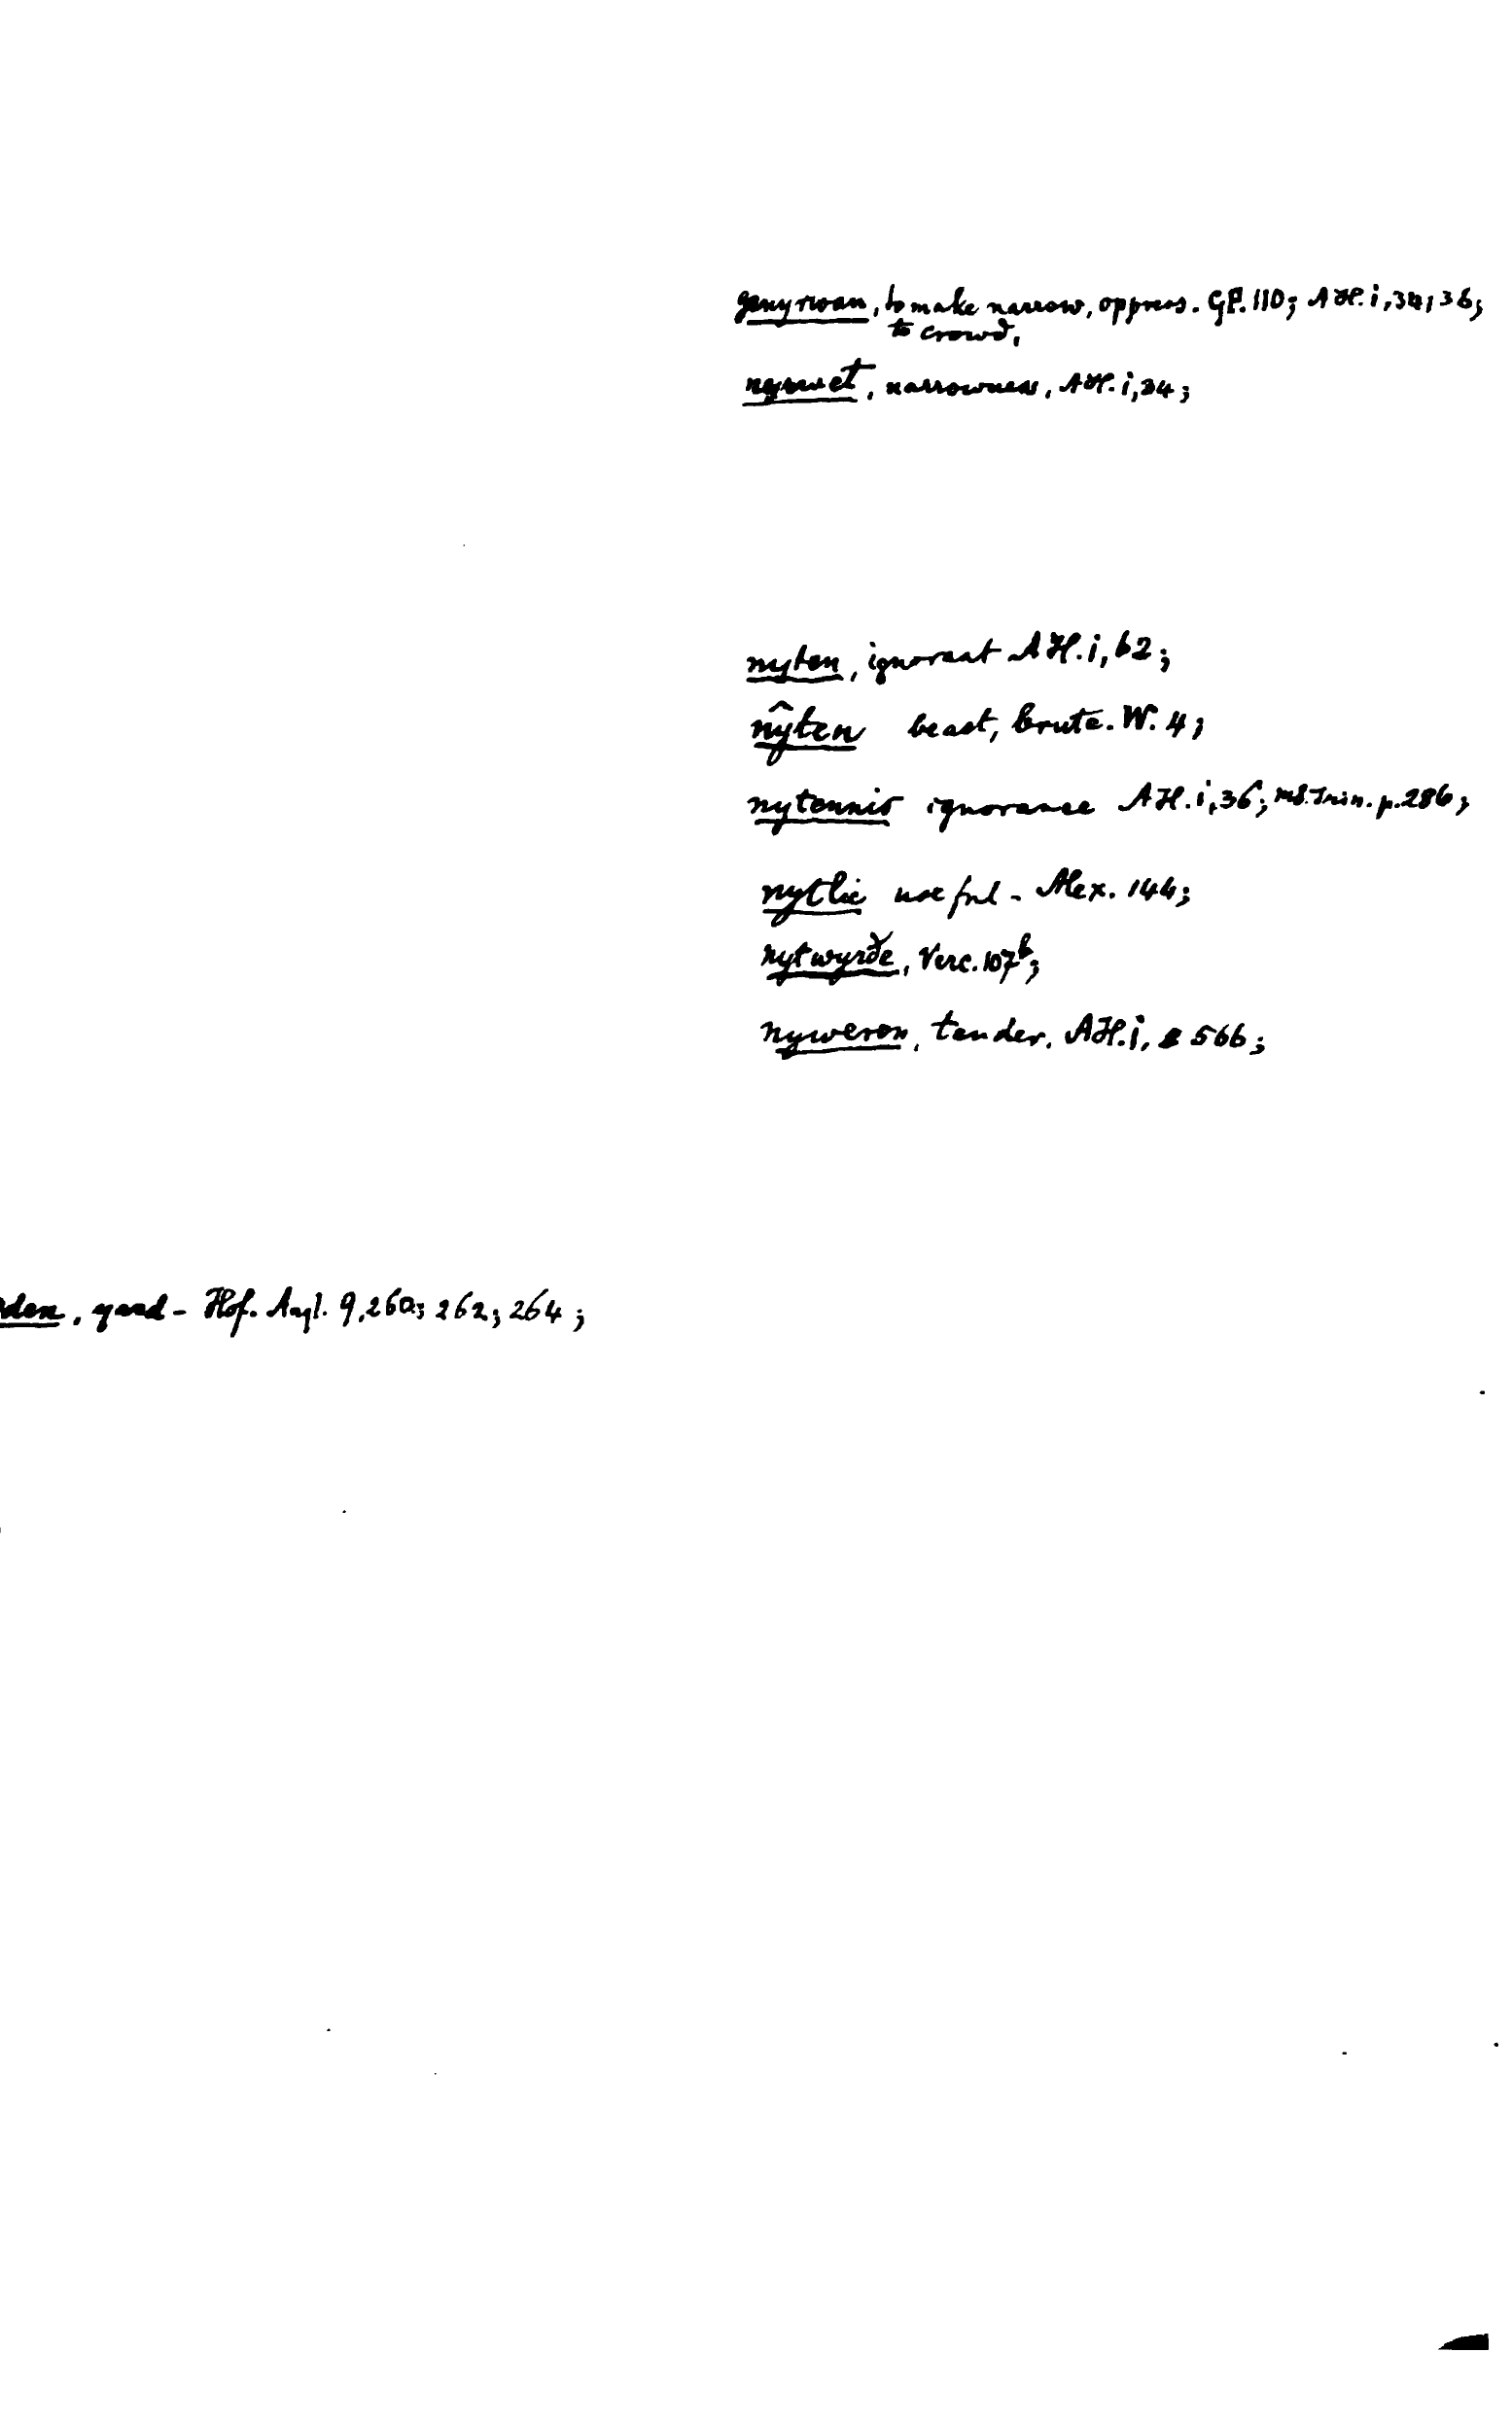 genyrwan, to make narrow, oppress. GP. 110; AH. i, 34; 36;
to crowd,
nyrwet, narrowness, AH. i, 34;
nyten, ignorant AH. i, 62;
nŷten beast, brute. W. 4;
nytennis ignorance AH. i, 36; MS. Trin. p. 286;
nytlic useful - Alex. 144;
nytwyrðe, Verc. 107b;
nyweren, tender. AH. i, 566;
den, yard - Hof. Angl. 9, 260; 262; 264;